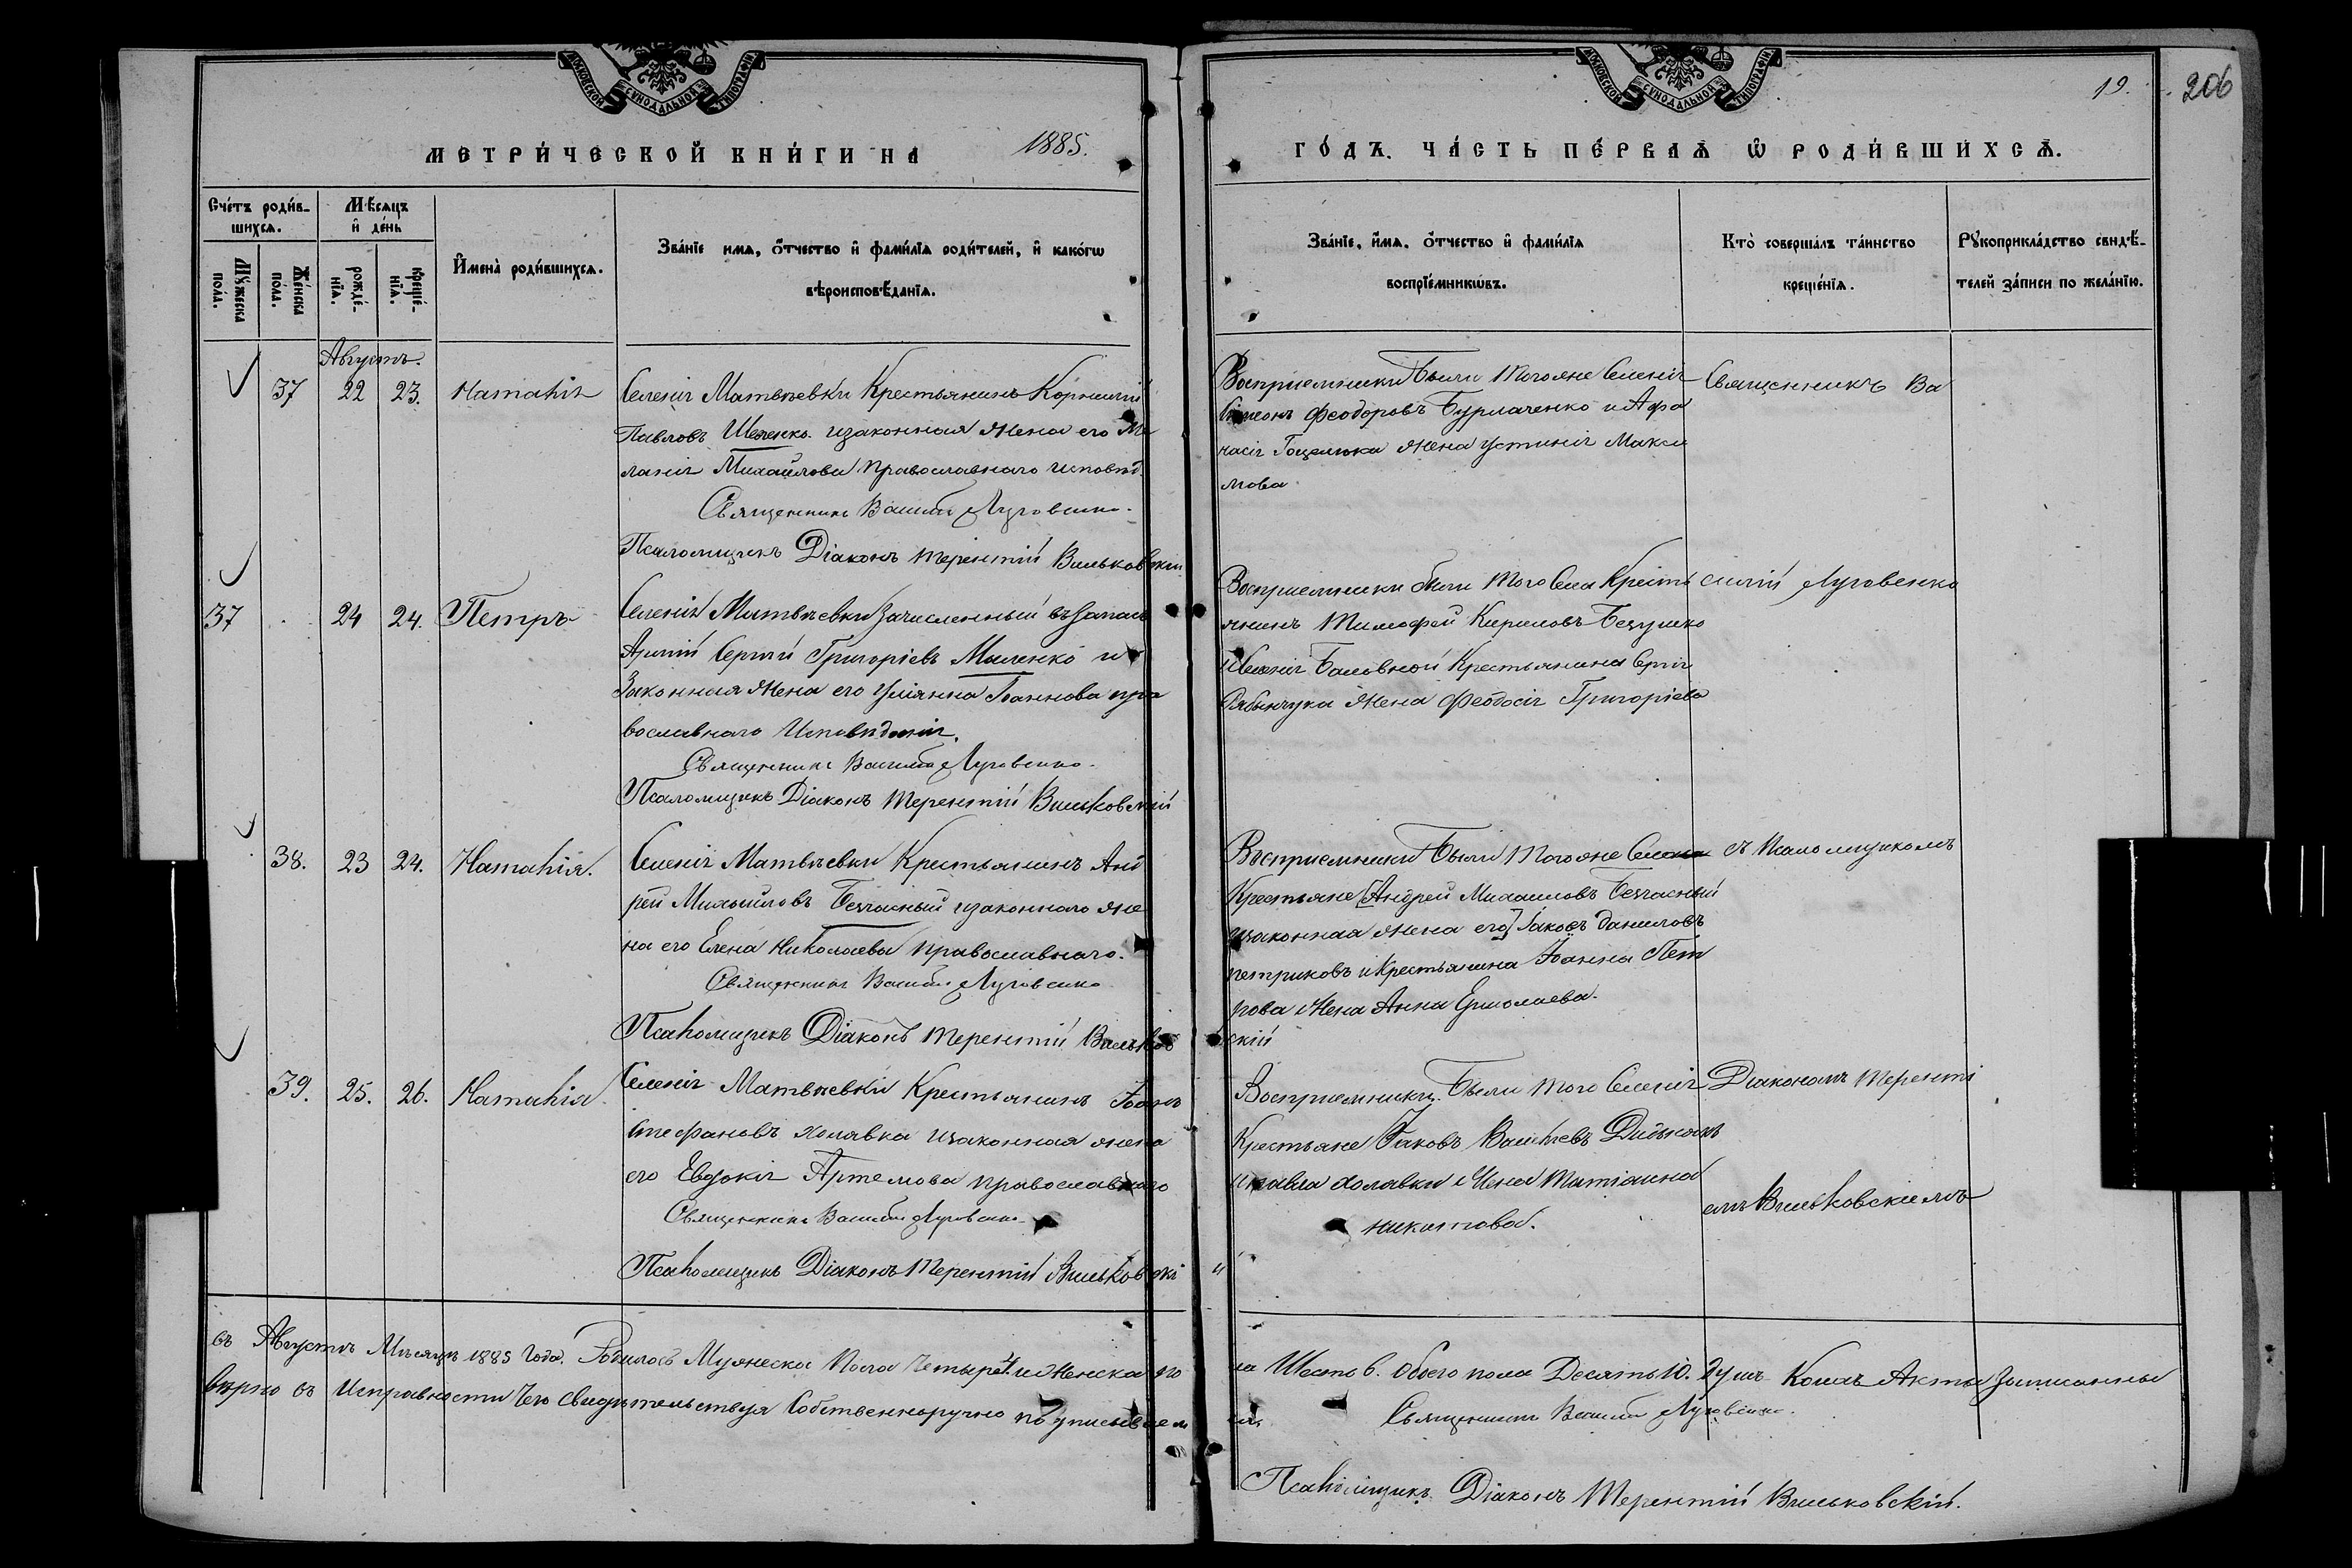 МОСКОВСКОЙ СУНОДАЛЬНОЙ ТИПОГРАФІИ
МОСКОВСКОЙ СУНОДАЛЬНОЙ ТИПОГРАФІИ
19.
206
МЕТРИ́ЧЕСКОЙ КНИ́ГИ НА 1885.
ГО́ДЪ. ЧА́СТЬ ПЕ́РВАѦ Ѡ РОДИ́ВШИХСѦ.
Сче́тъ роди́в-
шихсѧ.
Мꙋ́жеска
пола.
Же́нска
по́ла.
Мѣ́сѧцъ
и де́нь
рожде́-
нїѧ.
креще́-
нїѧ.
Имена̀ роди́вшихсѧ.
Зва́нїе имѧ, о́тчество и фами́лїѧ роди́телей, и како́гѡ
вѣроисповѣ́данїѧ.
Зва́нїе, и́мѧ, о́тчество и фами́лїѧ
воспрїе́мникѡвъ.
Кто̀ соверша́лъ та́инство
креще́нїѧ.
Рꙋкоприкла́дство свидѣ́-
телей за́писи по жела́нїю.
Августъ.
37 22 23. Наталія
Селенія Матвѣевки Крестьянинъ Корнилій
Павловъ Шевченко изаконная жена его Ме
ланія Михайлова Православнаго исповѣд.
Священникъ Василій Луговенко.
Псаломщикъ Діаконъ Терентій Вильковскій
Восприемники Были тогоже Селенія
Симеонъ Феодоровъ Бурлаченко и Афа
насія Гоцелюка жена Устинія Макси
мова
Священникъ Ва
37 24 24. Петръ
Селенія Матвѣевки Зачисленный въ запасъ
Арміи Сергій Григоріевъ Миленко и
Законная жена его Уліянна Іоаннова пра
вославнаго Исповѣданія.
Священникъ Василій Луговенко.
Псаломщикъ Діаконъ Терентій Вильковскій
Восприемники были того Села Кресть
янинъ Тимофей Кириловъ
Селенія Баловной Крестьянина Сергія
жена Феодосія Григоріева
силій Луговенко
38. 23 24. Наталія.
Селенія Матвѣевки Крестьянинъ Анд
рей Михайловъ Безчасный изаконнаго же
на его Елена Николаева православнаго.
Священникъ Василій Луговенко
Псаломщикъ Діаконъ Терентій Вильков
скій
Восприемники Были тогоже Селенія
Крестьяне [Андрей Михаиловъ Безчасный
изаконная жена его] Іаковъ Даниловъ
петриковъ и Крестьянина Іоанна Пет
рова Жена Анна Ермолаева.
съ Псаломщикомъ
39. 25. 26. Наталія
Селенія Матвѣевки Крестьянинъ Іоанъ
Стефановъ Халявка изаконная жена
его Евдокія Артемова православнаго
Священникъ Василій Луговенко
Псаломщикъ Діаконъ Терентій Вильковскі
й
Восприемники Были того Селенія
Крестьяне Іаковъ Василіевъ
и павла Халавки Жена Татіанна
никитова.
Діакономъ Теренті
емъ Вильковскиемъ
въ Августѣ Мѣсяцѣ 1885 Года. Родилось Мужеска Пола Четыре 4. и Женска по
ла Шесть 6. Обоего пола Десять 10. душъ
Вѣрно въ Исправности Чего Свидѣтельствуя Собственноручно подписываем
ся,
Священникъ Василій Луговенко.
Псаломщикъ Діаконъ Терентій Вильковскій.